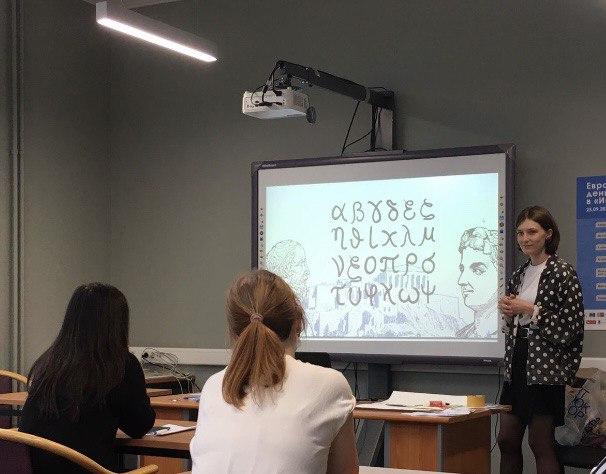 αβγδες
ηθίχλμ
νξοπρσ
τυφχωψ
Евро
день
в «И
25.09.20